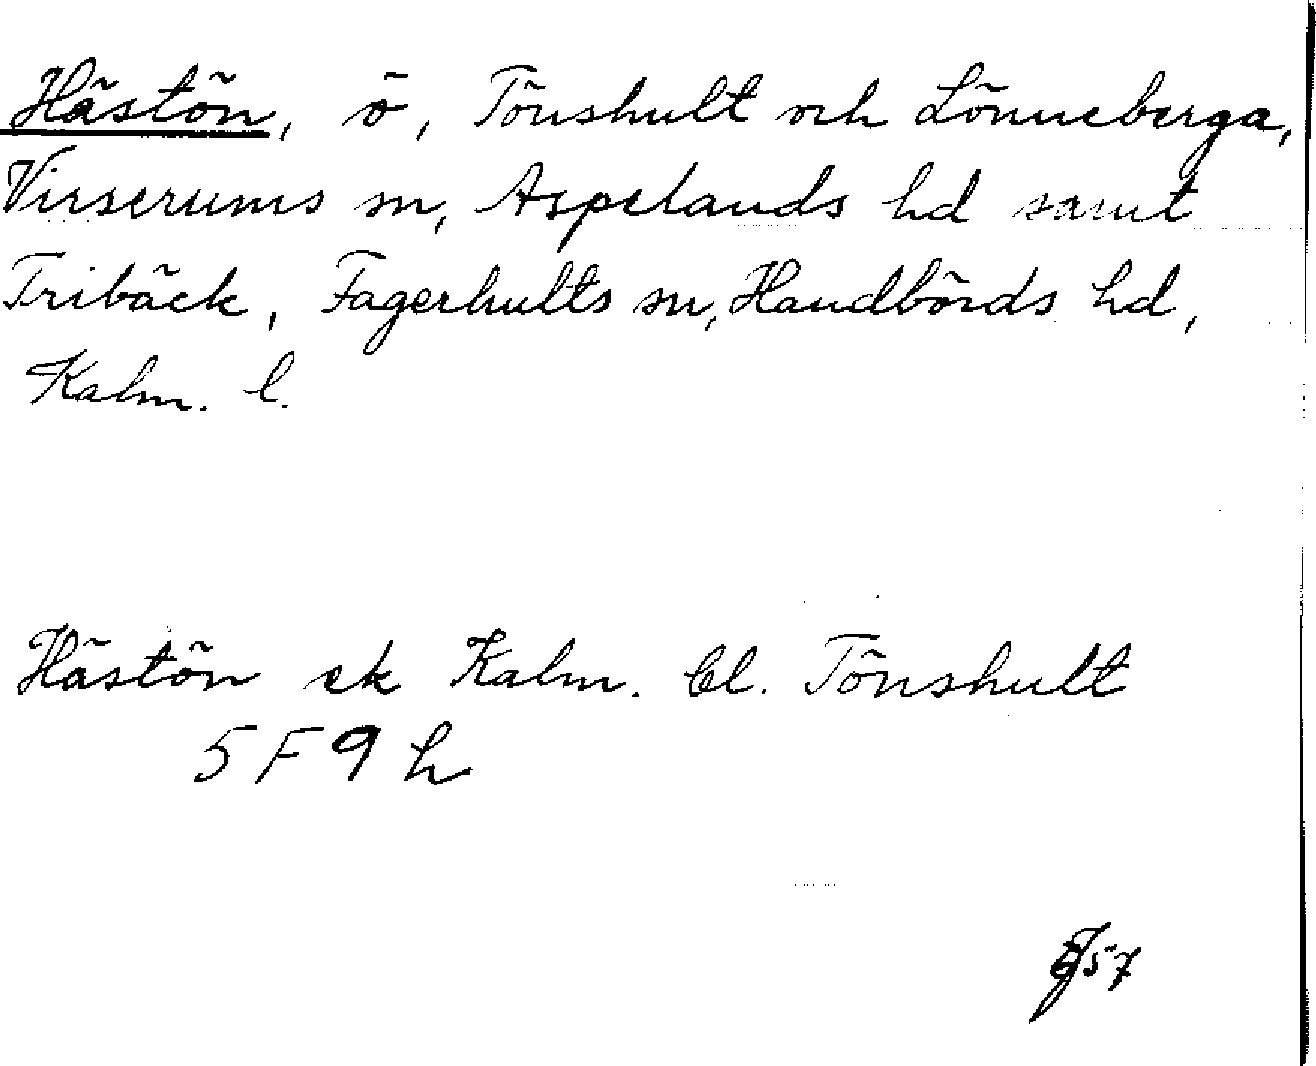 Hästön, ö, Tönshult och Lönneberga,
Virserums sn, Aspelands hd samt
Tribäck, Fagerhults sn, Handbörds hd,
Kalm. l.
Hästön ek Kalm. bl. Tönshult
5 F 9 h
57